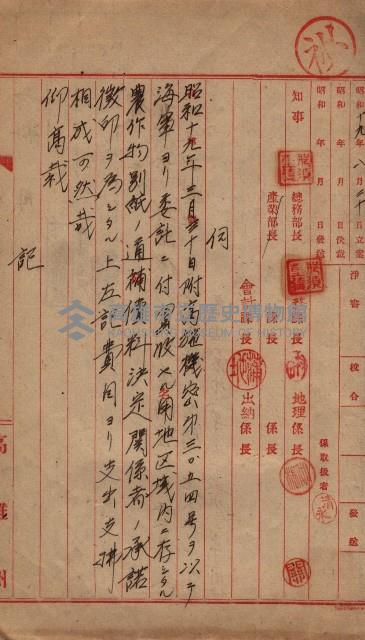 昭和十九年八月 日立案
昭和 年 月 日決裁
昭和 年 月 日發送
淨書
校合
發送
知事
總務部長
產業部長
課長
係長
地理係長
係取扱者
會計課長
係長
出納係長
伺
昭和十九年三月三十日附高地機密第三〇五四号ヲ以テ
海軍ヨリ委託ニ付買收セル用地区域內ニ存シタル
農作物別紙ノ通補償料決定関係者ノ承諾
徵印ヲ為シタル上左記費目ヨリ支出支拂
相成可然哉
仰高裁
記
高雄州
高雄市立歷史博物館
KAOHSIUNG MUSEUM OF HISTORY